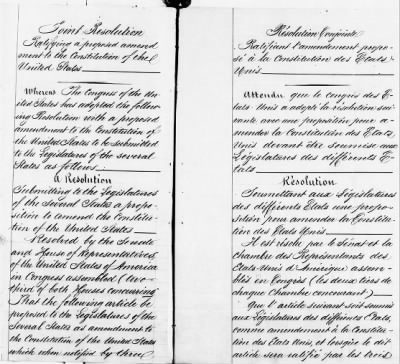 Joint Resolution
Ratifying a proposed amend
ment to the Constitution of the
United States
Whereas The Congress of the Uni
ted States has adopted the follow
ing Resolution with a proposed
amendment to the Constitution of
the United States to be submitted
to the Legislatures of the several
States as follows
A Resolution
Submitting to the Legislatures
of the Several States a propo
sition to amend the Constitu
tion of the United States
Resolved by the Senate
and House of Representatives
of the United States of America
in Congress assembled (two
third of both Houses concurring)
That the following article be
proposed to the Legislatures of the
Several States as amendment to
the Constitution of the United States
which when ratified by three
Résolution Conjointe
Ratifiant l'amendement propo
sé à la Constitution des Etats
Unis
Attendu que le congrès des E
tats Unis a adopté la résolution sui
vante avec une proposition pour a
mender la Constitution des Etats
Unis devant être soumise aux
Législatures des différents E
tats
Résolution
Soumettant aux Législatures
des différents Etats une propo
sition pour amender la Constitu
tion des Etats Unis
Il est résolu par le Sénat et la
chambre des Représentants des
Etats Unis d'Amérique assem
blés en Congrès (les deux tiers de
chaque Chambre concourant)
Que l'article suivant soit soumis
aux Législatures des différents Etats,
comme amendement à la Constitu
tion des Etats Unis, et lorsque le dit
article sera ratifié par les trois